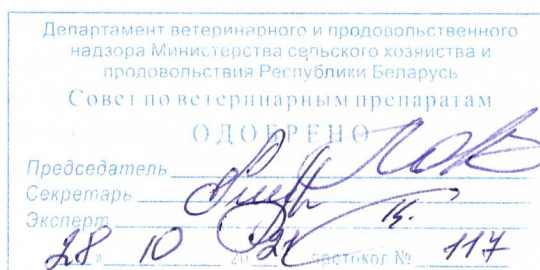 Департамент ветеринарного и продовольственного
надзора Министерства сельского хозяйства и
продовольствия Республики Беларусь
Совет по ветеринарным препаратам
ОДОБРЕНО
Председатель
Секретарь
Эксперт
28 10 2021 протокол № 117